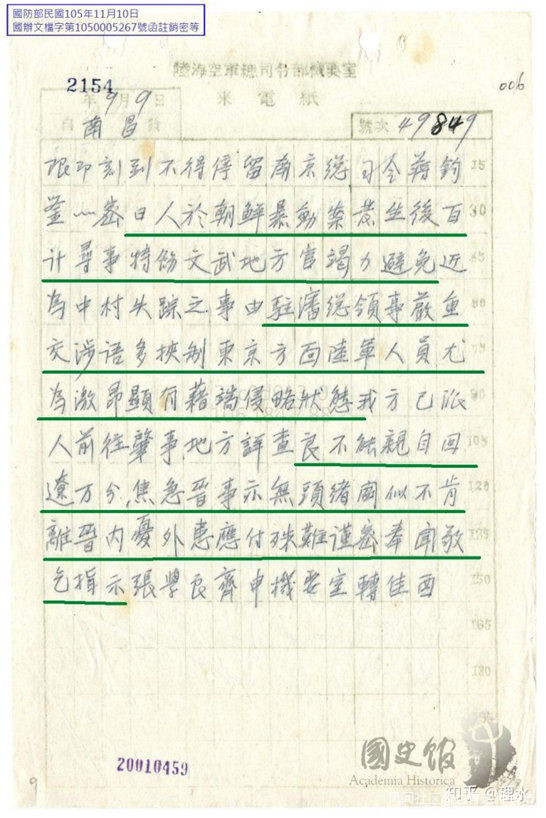 國防部民國105年11月10日
國辦文檔字第1050005267號函註銷密等
陸海空軍總司令部機要室
006
2154
來電紙
年9月9日
自南昌發
號次 49849
限即刻到不得停留南京總司令蔣鈞 15
鉴〰密日人於朝鮮暴動案發生後百 30
計尋事特飭文武地方官竭力避免近 45
為中村失踪之事由駐瀋總領事嚴重 60
交涉语多挾制東京方面陸軍人員尤 75
為激昂顯有藉端侵略狀態我方已派 90
人前往肇事地方詳查良不能親自回 105
遼万分焦急晉事亦無頭緒閻似不肯 120
離晉内憂外患應付殊難谨密奉聞敬 135
乞指示張學良齊申機要室轉佳酉 150
165
180
國史館
Academia Historica
20010459
9
知乎 @理水